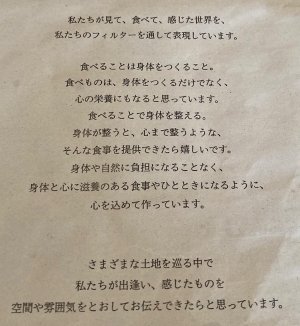 私たちが見て、食べて、感じた世界を、
私たちのフィルターを通して表現しています。
食べることは身体をつくること。
食べものは、身体をつくるだけでなく、
心の栄養にもなると思っています。
食べることで身体を整える。
身体が整うと、心まで整うような、
そんな食事を提供できたら嬉しいです。
身体や自然に負担になることなく、
身体と心に滋養のある食事やひとときになるように、
心を込めて作っています。
さまざまな土地を巡る中で
私たちが出逢い、感じたものを
空間や雰囲気をとおしてお伝えできたらと思っています。